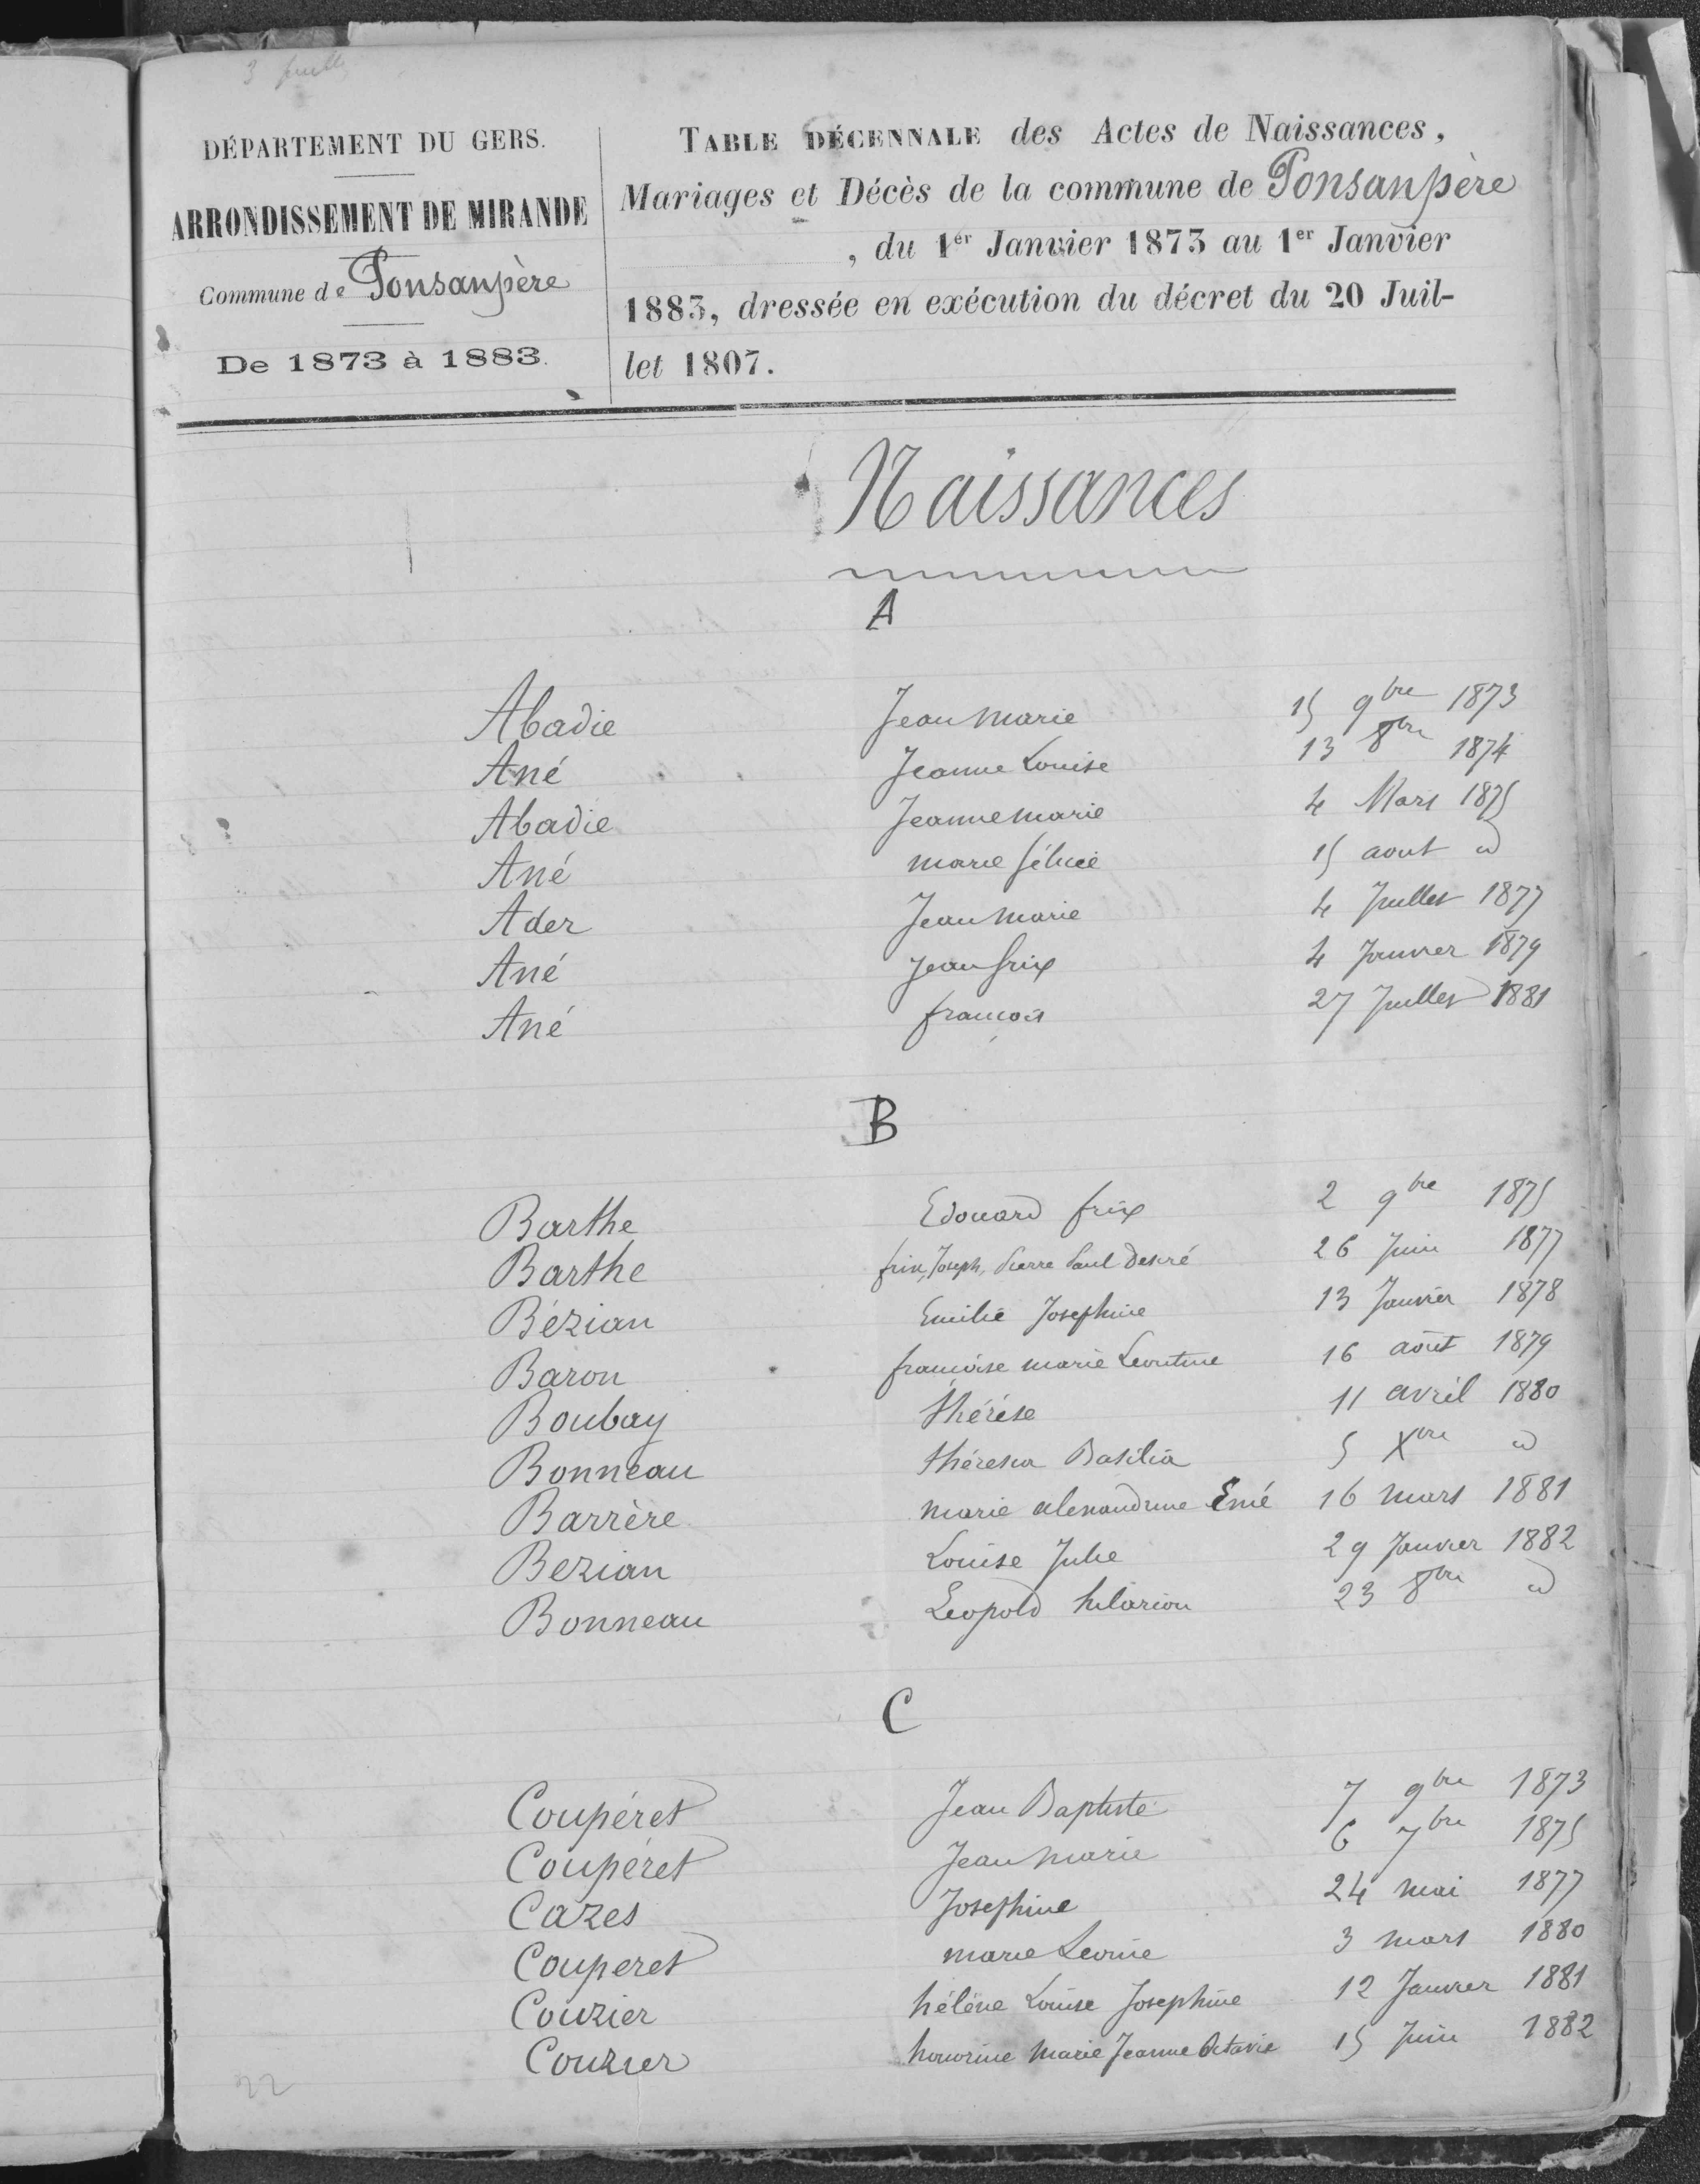 3 feuilles
DÉPARTEMENT DU GERS.
ARRONDISSEMENT DE MIRANDE
Commune de Ponsanpère
De 1873 à 1883.
TABLE DÉCENNALE des Actes de Naissances,
Mariages et Décès de la commune de Ponsanpère
, du 1er Janvier 1873 au 1er Janvier
1883, dressée en exécution du décret du 20 Juil-
let 1807.
Naissances
A
Abadie Jean marie 15 9bre 1873
Ané Jeanne Louise 13 8bre 1874
Abadie Jeanne marie 4 Mars 1875
Ané marie félicie 15 aout id
Ader Jean marie 4 Juillet 1877
Ané Jean frix 4 Janvier 1879
Ané françois 27 Juillet 1881
B
Barthe Edouard frix 2 9bre 1875
Barthe frix, Joseph, Pierre Paul Desiré 26 Juin 1877
Bézian Emilie Josephine 13 Janvier 1878
Baron françoise marie Leontine 16 août 1879
Boubay thérèse 11 avril 1880
Bonneau théresia Basilia 5 Xbre id
Barrère marie alexandrine Emé 16 mars 1881
Bezian Louise Julie 29 Janvier 1882
Bonneau Leopold hilarion 23 8bre id
C
Coupéret Jean Baptiste 7 9bre 1873
Coupéret Jean marie 6 7bre 1875
Cazes Josephine 24 mai 1877
Couperet marie Leonie 3 mars 1880
Couzier hélène Louise Josephine 12 Janvier 1881
Couzier honorine Marie Jeanne Octavie 15 Juin 1882
22